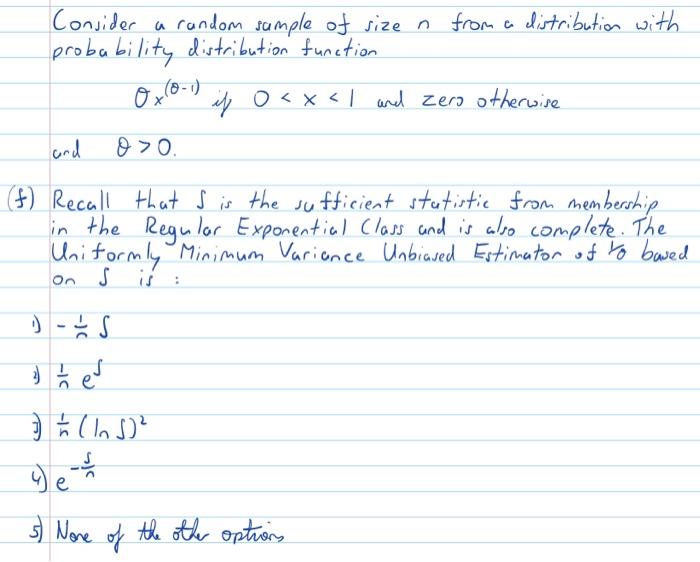 Consider a random sample of size n from a distribution with
probability distribution function
θx^(θ-1) if 0 < x < 1 and zero otherwise
and θ > 0.
(f) Recall that S is the sufficient statistic from membership
in the Regular Exponential Class and is also complete. The
Uniformly Minimum Variance Unbiased Estimator of 1/θ based
on S is :
1) - 1/n S
2) 1/n e^S
3) 1/n (ln S)²
4) e^(-S/n)
5) None of the other options